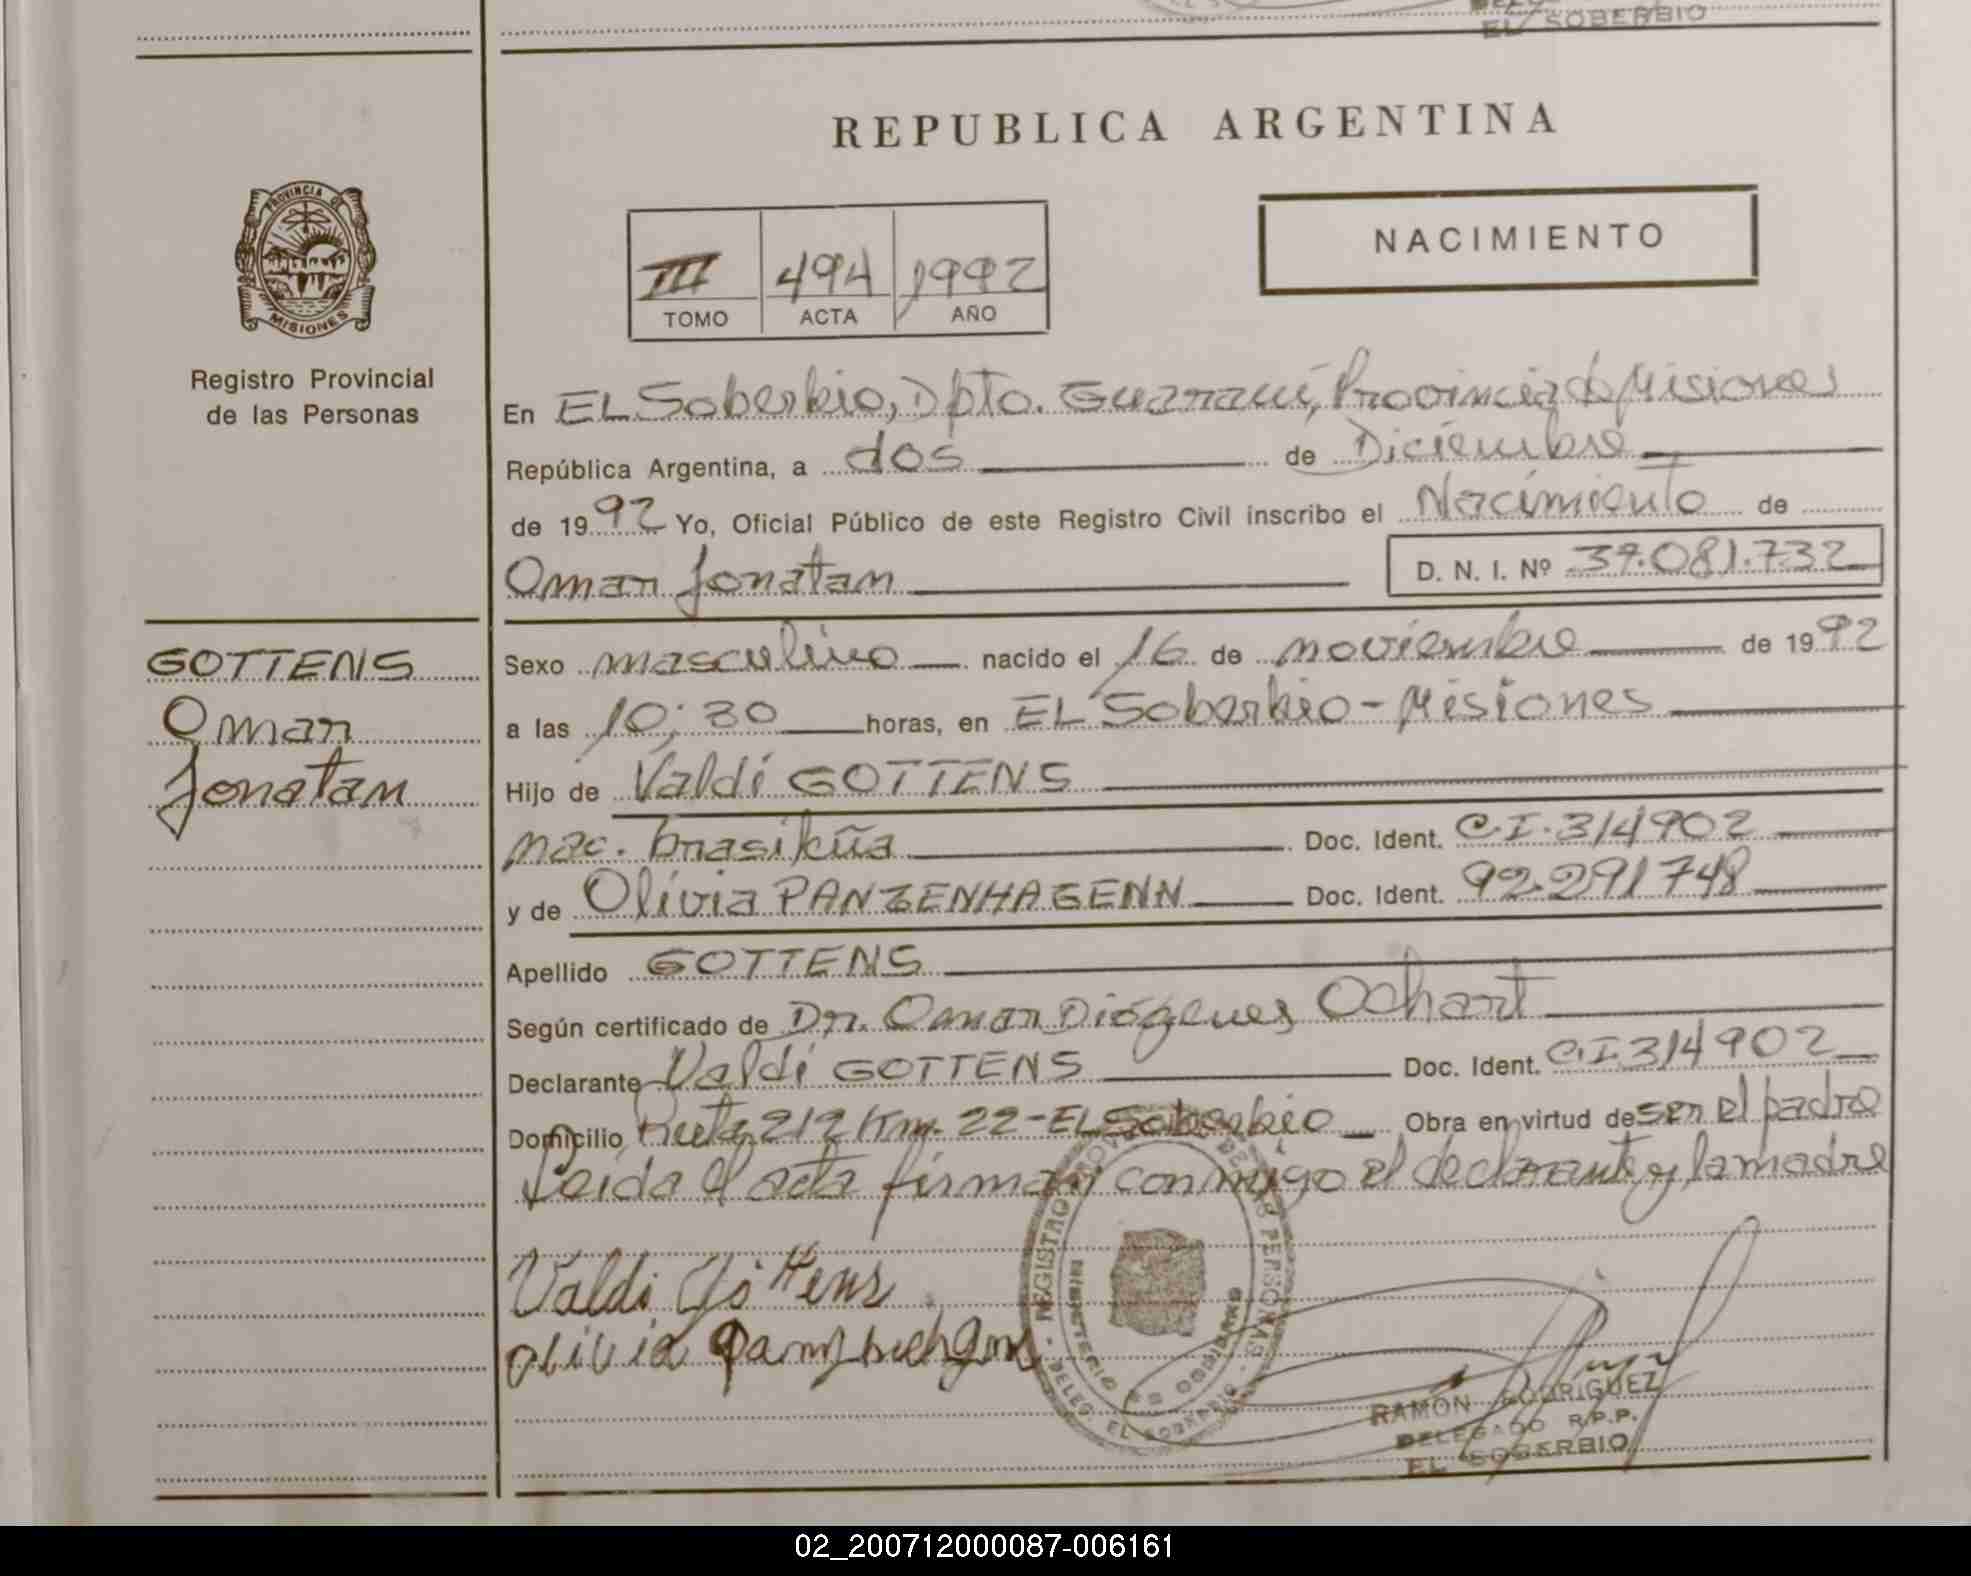 EL SOBERBIO
REPUBLICA ARGENTINA
PROVINCIA DE
MISIONES
Registro Provincial
de las Personas
III 494 1992
TOMO ACTA AÑO
NACIMIENTO
En EL Soberbio, Dpto. Guaraní, Provincia de Misiones
República Argentina, a dos de Diciembre
de 1992 Yo, Oficial Público de este Registro Civil inscribo el Nacimiento de
Omar Jonatam D. N. I. Nº 37.081.732
GOTTENS
Omar
Jonatam
Sexo masculino nacido el 16 de noviembre de 1992
a las 10;30 horas, en EL Soberbio - Misiones
Hijo de Valdí GOTTENS
nac. brasileña Doc. Ident. C.I. 314902
y de Olivia PANZENHAGENN Doc. Ident. 92.291748
Apellido GOTTENS
Según certificado de Dr. Omar Diógenes Ochart
Declarante Valdi GOTTENS Doc. Ident. C.I 314902
Domicilio Ruta 212 Km. 22 - EL Soberbio Obra en virtud de ser el padre
Leída el acta firman conmigo el declarante y la madre
Valdi Gottens
olivia
REGISTRO PROV. DE LAS PERSONAS
MINISTERIO DE GOBIERNO
DELEG. EL SOBERBIO
RAMÓN RODRIGUEZ
DELEGADO R.P.P.
EL SOBERBIO
02_200712000087-006161